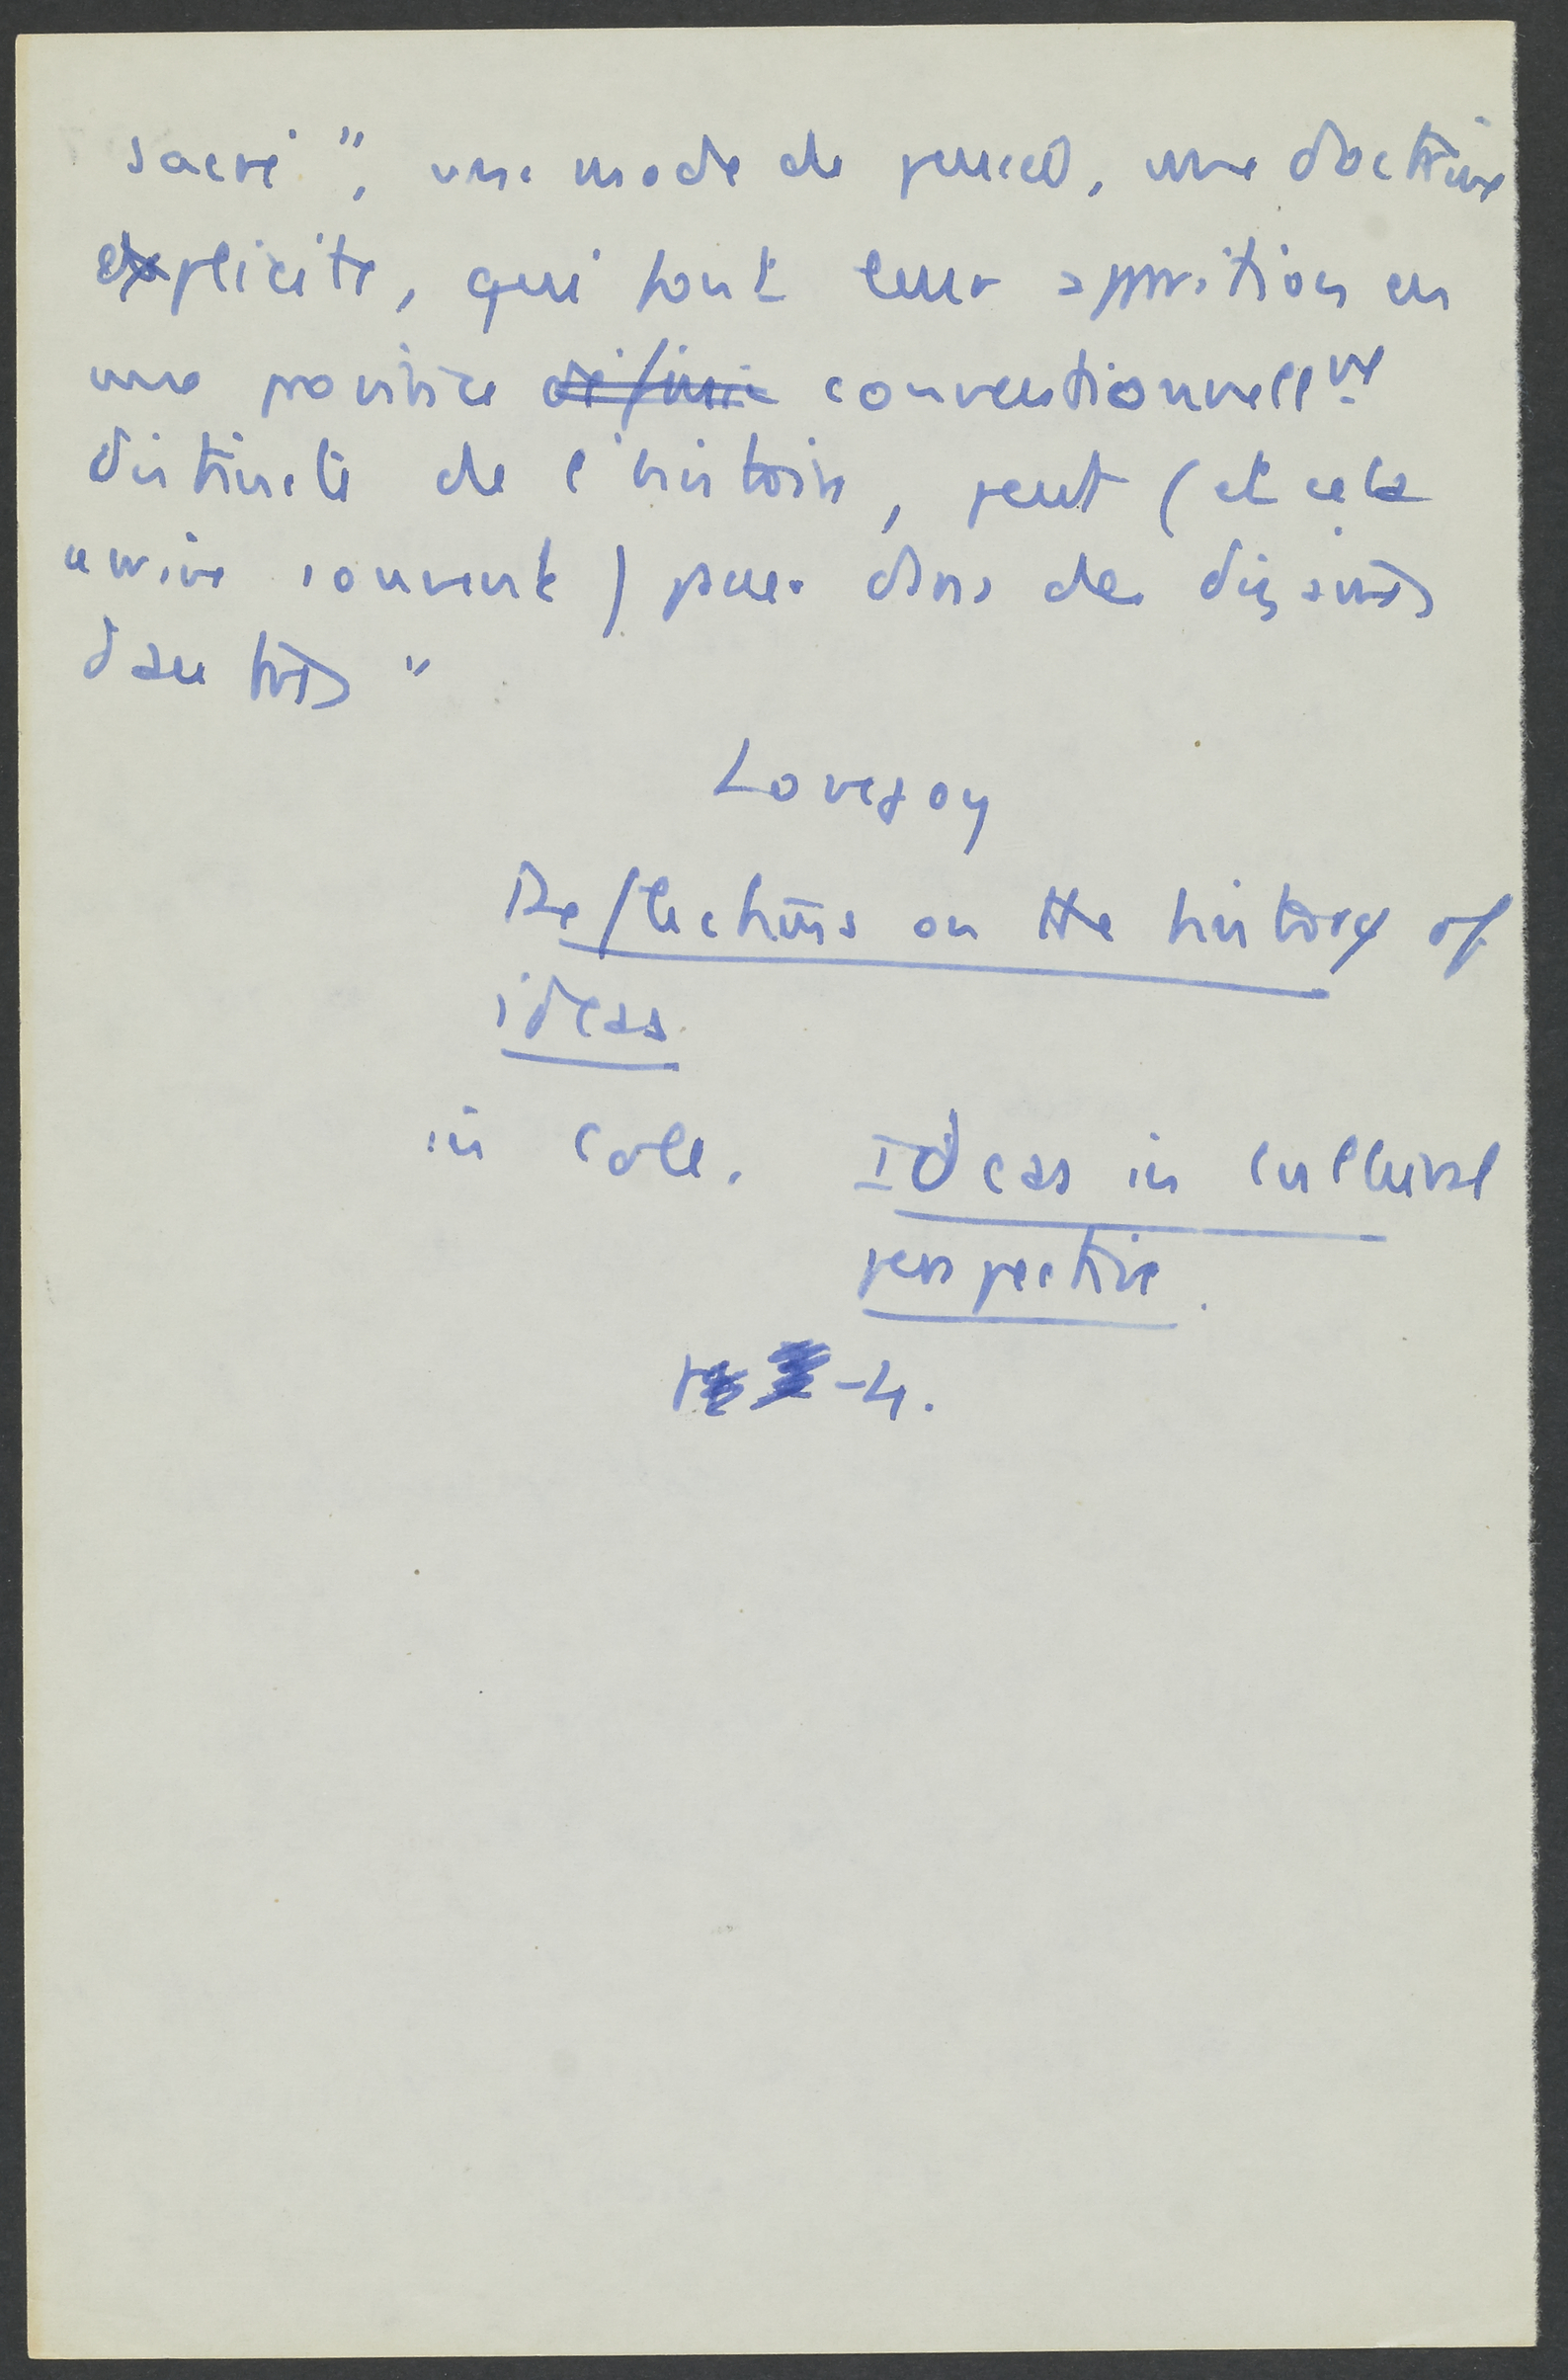 sacré", une mode de pensée, une doctrine
explicite, qui font leur apparition en
une province définie conventionnellt
distincte de l'histoire, peut (et cela
arrive souvent) passer dans des dizaines
d'autres"
Lovejoy
Reflections on the history of
ideas
in coll. Ideas in cultural
perspective.
-4.